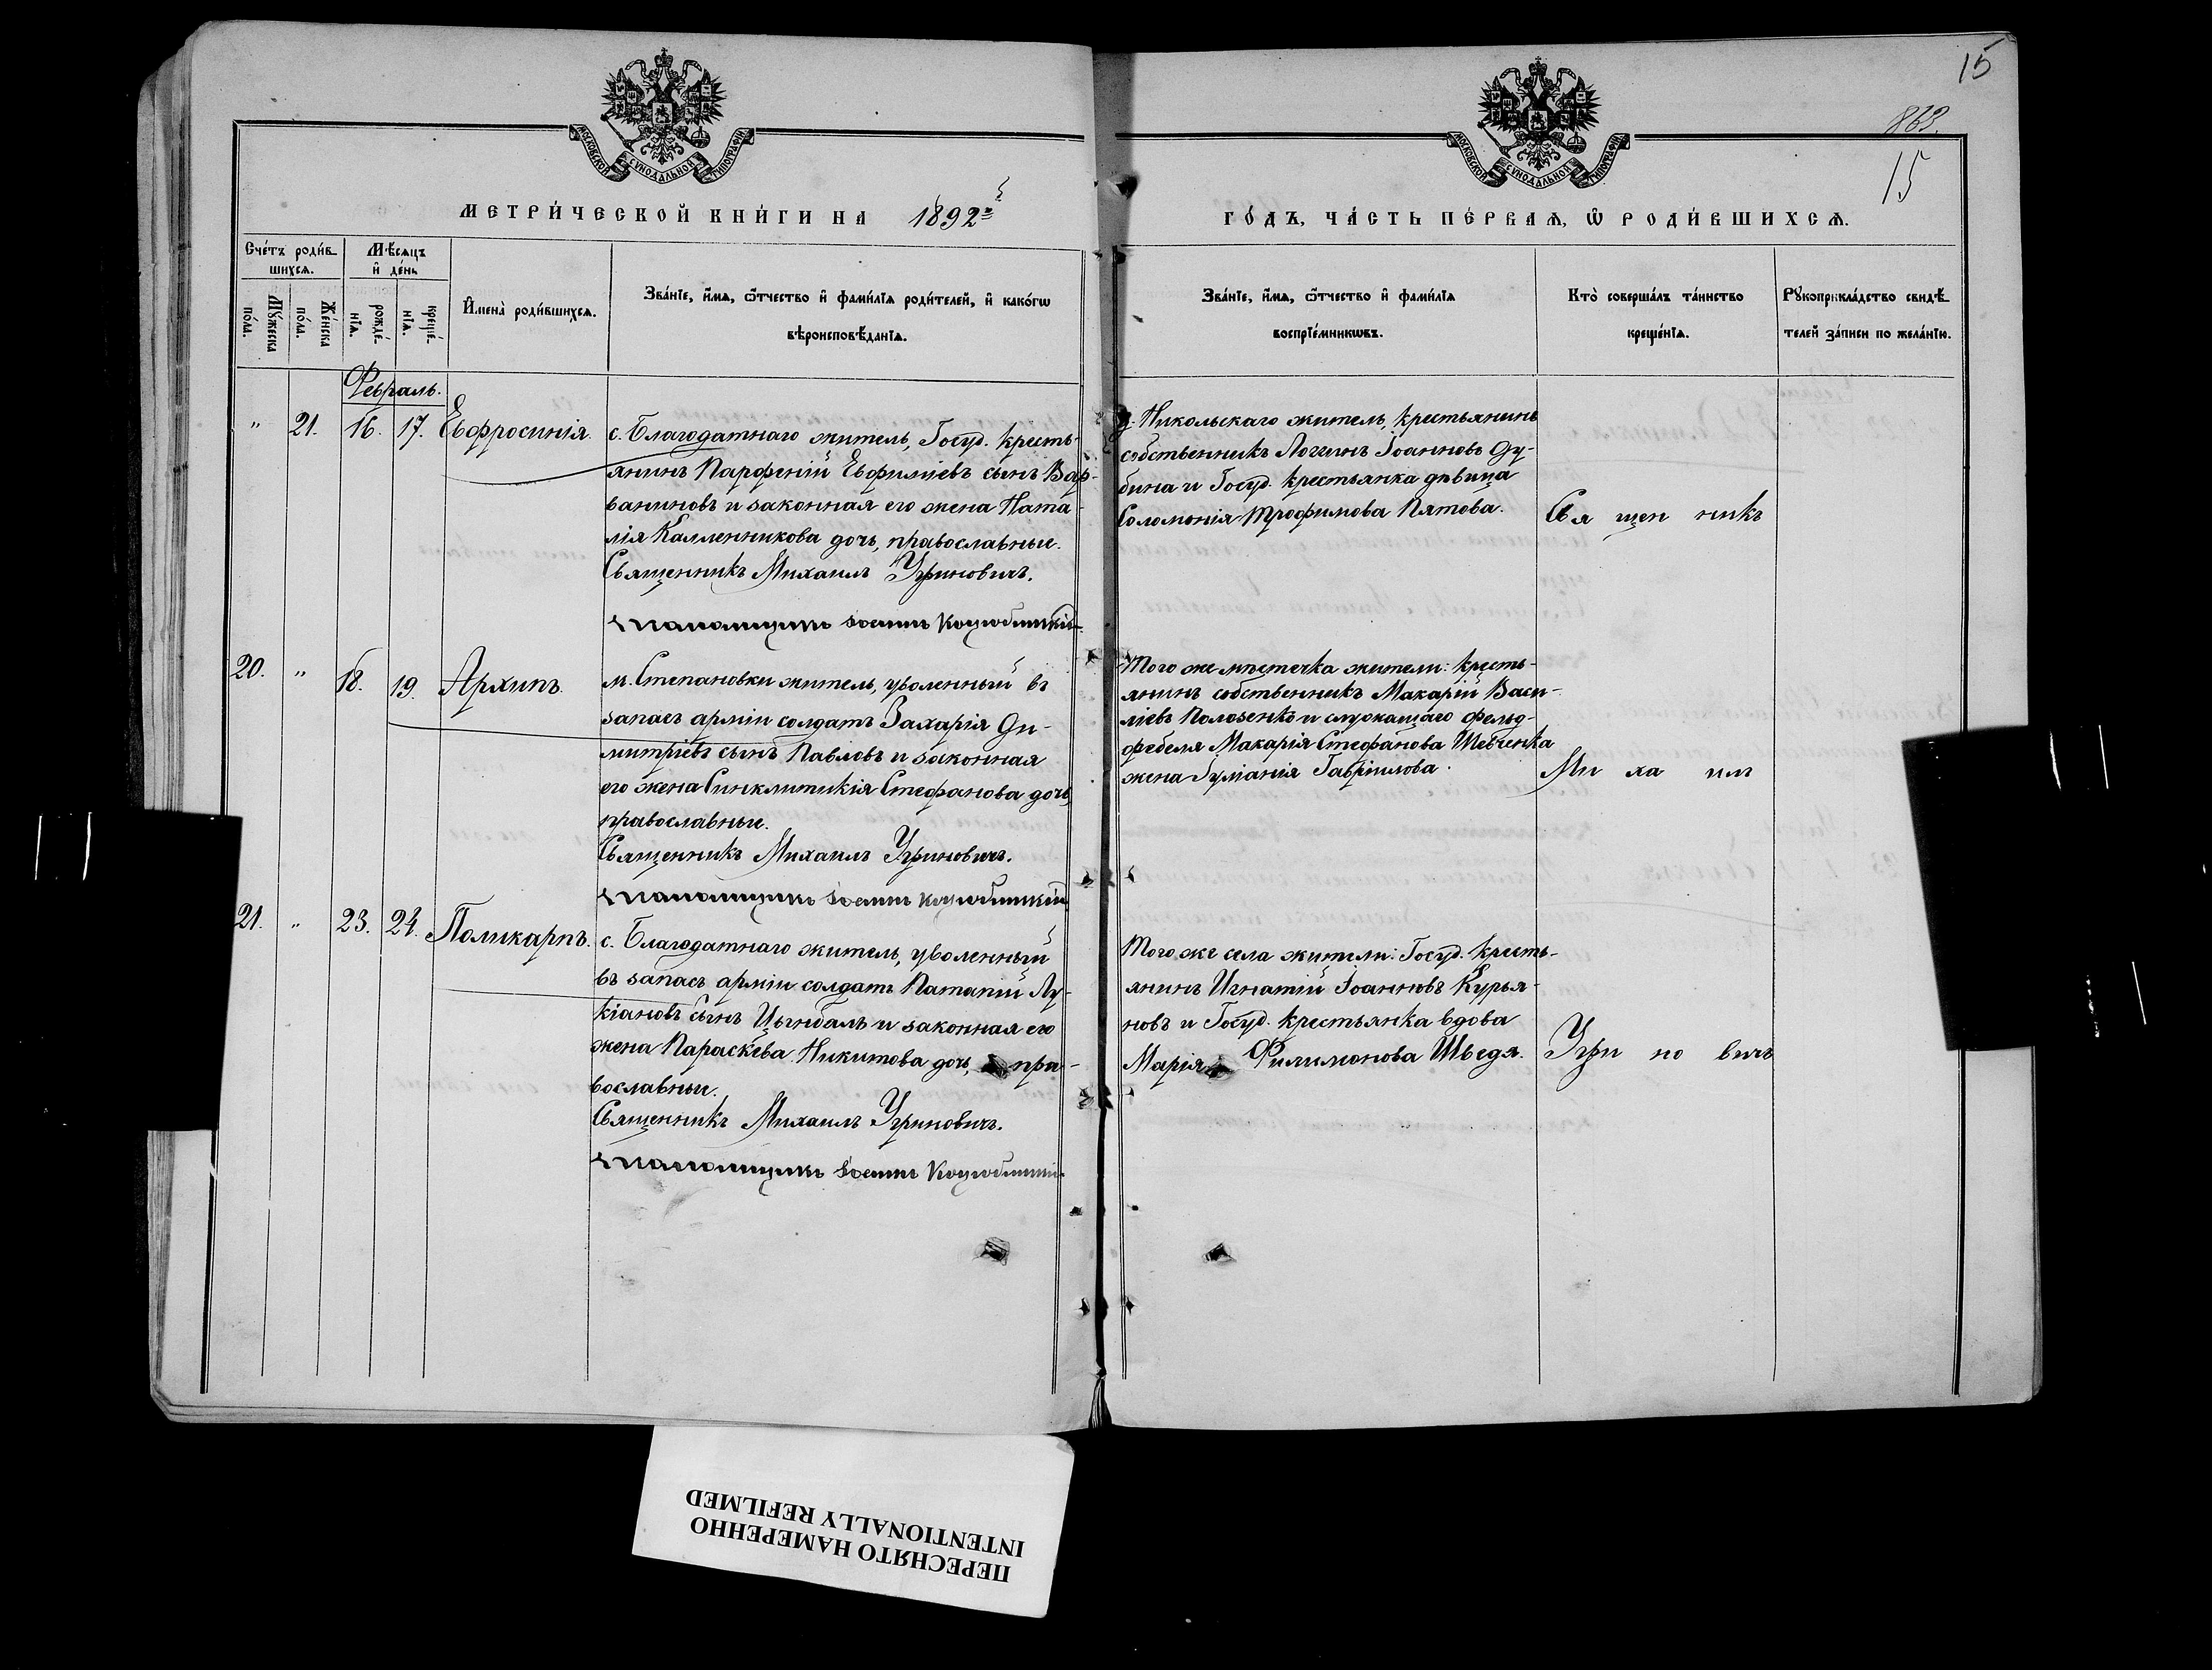 15
863.
15
МОСКОВСКОЙ СУНОДАЛЬНОЙ ТИПОГРАФІИ
МОСКОВСКОЙ СУНОДАЛЬНОЙ ТИПОГРАФІИ
МЕТРИ́ЧЕСКОЙ КНИ́ГИ НА 1892й
ГО́ДЪ, ЧА́СТЬ ПЕ́РВАѦ, Ѡ҃ РОДИ́ВШИХСѦ.
Сче́тъ роди́в-
шихсѧ.
Мꙋ́жеска
по́ла.
Же́нска
по́ла.
Мѣ́сѧцъ
и҆ де́нь
рожде́-
нїѧ.
креще́-
нїѧ.
И҆мена̀ роди́вшихсѧ.
Зва́нїе, и҆́мѧ, ѻ҆́тчество и҆ фами́лїѧ роди́телей, и҆ како́гѡ
вѣроисповѣ́данїѧ.
Зва́нїе, и҆́мѧ, ѻ҆́тчество и҆ фами́лїѧ
воспрїе́мникѡвъ.
Кто̀ соверша́лъ та́инство
креще́нїѧ.
Рꙋкоприкла́дство свидѣ́-
телей за́писи по жела́нїю.
Февраль.
" 21. 16. 17. Евфросинія.
с. Благодатнаго житель, Госуд. кресть-
янинъ Парфеній Евфиміевъ сынъ Вар-
ваниновъ и законная его жена Ната-
лія Калленникова дочь, православные.
Священникъ Михаилъ Угриновичъ.
Псаломщикъ Іосифъ Коцюбинскій
д. Никольскаго житель, крестьянинъ
собственникъ Логгинъ Іоанновъ Ду-
бина и Госуд. крестьянка дѣвица
Соломонія Трофимова Пятова.
Свя щен никъ
20. " 18. 19. Архипъ.
м. Степановки житель, уволенный въ
запасъ арміи солдатъ Захарія Ди-
митріевъ сынъ Павловъ и законная
его жена Синклитикія Стефанова дочь,
православные.
Священникъ Михаилъ Угриновичъ.
Псаломщикъ Іосифъ Коцюбинскій
Того же мѣстечка жители: кресть-
янинъ собственникъ Макарій Васи-
ліевъ Полозенко и служащаго фельд-
фебеля Макарія Стефанова Шевченка
жена Іуліанія Гавріилова.
Ми ха илъ
21. " 23. 24. Поликарпъ.
с. Благодатнаго житель, уволенный
въ запасъ арміи солдатъ Патапій Лу-
кіановъ сынъ Цымбалъ и законная его
жена Параскева Никитова дочь, пра-
вославные.
Священникъ Михаилъ Угриновичъ.
Псаломщикъ Іосифъ Коцюбинскій
Того же села жители: Госуд. кресть-
янинъ Игнатій Іоанновъ Курья-
новъ и Госуд. крестьянка вдова
Марія Филимонова Шведя.
Угри но вичъ
ПЕРЕСНЯТО НАМЕРЕННО
INTENTIONALLY REFILMED